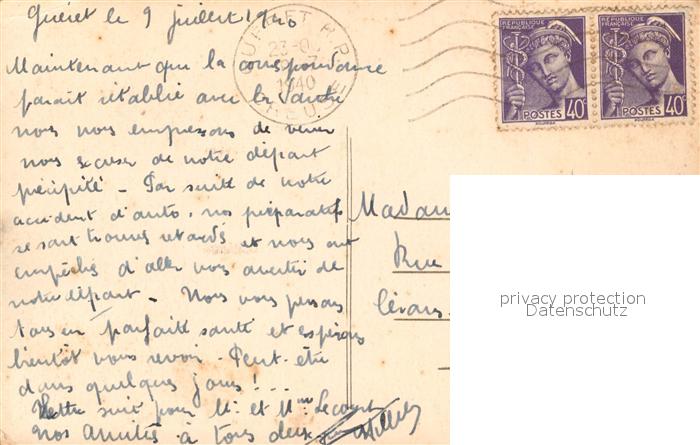 Guéret le 9 juillet 1940
Maintenant que la correspondance
parait rétablie avec la
nous nous empressons de venir
nous excuser de notre départ
précipité - Par suite de notre
accident d'auto, nos préparatifs
se sont trouvés retardés et nous ont
empêchés d'aller vous avertir de
notre départ - Nous vous pensons
tous en parfaite santé et espérons
bientôt vous revoir - Peut-être
dans quelques jours !..
suit pour Mr et Mme
nos amitiés à tous deux
GUERET R.P.
23-
1940
CREUSE
RÉPUBLIQUE FRANÇAISE
POSTES 40c
RÉPUBLIQUE FRANÇAISE
POSTES 40c
Madam
Rue
privacy protection
Datenschutz